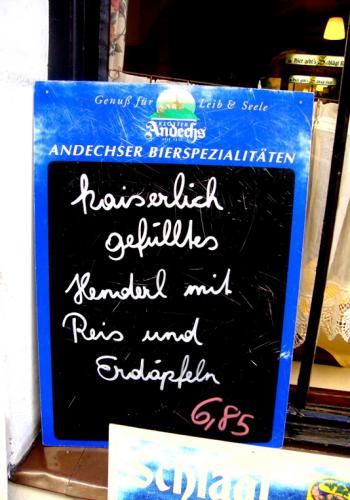 Hier geht's Schlägl
Genuß für Leib & Seele
KLOSTER
Andechs
ANDECHSER BIERSPEZIALITÄTEN
kaiserlich
gefülltes
Henderl mit
Reis und
Erdäpfeln
6,85
schlägl